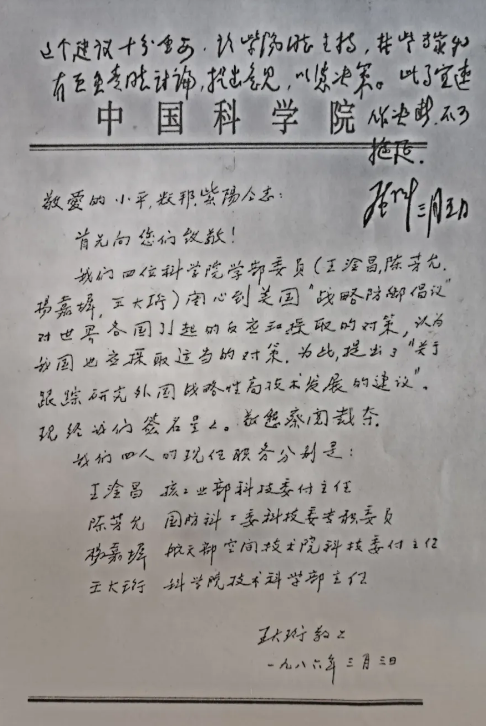 这个建议十分重要，找紫阳同志主持，找些专家和
有关负责同志讨论，提出意见，以凭决策。此事宜速
作决断，不可
拖延。
三月五日
中国科学院
敬爱的小平，耀邦，紫陽同志：
首先向您们致敬！
我们四位科学院学部委员（王淦昌，陈芳允，
杨嘉墀，王大珩）关心到美国“战略防御倡议”
对世界各国引起的反应和采取的对策，认为
我国也应采取适当的对策，为此，提出了“关于
跟踪研究外国战略性高技术发展的建议”。
现经我们签名呈上。敬恳察阅裁夺。
我们四人的现任职务分别是：
王淦昌 核工业部科技委付主任
陈芳允 国防科工委科技委专职委员
杨嘉墀 航天部空间技术院科技委付主任
王大珩 科学院技术科学部主任
王大珩敬上
一九八六年三月三日